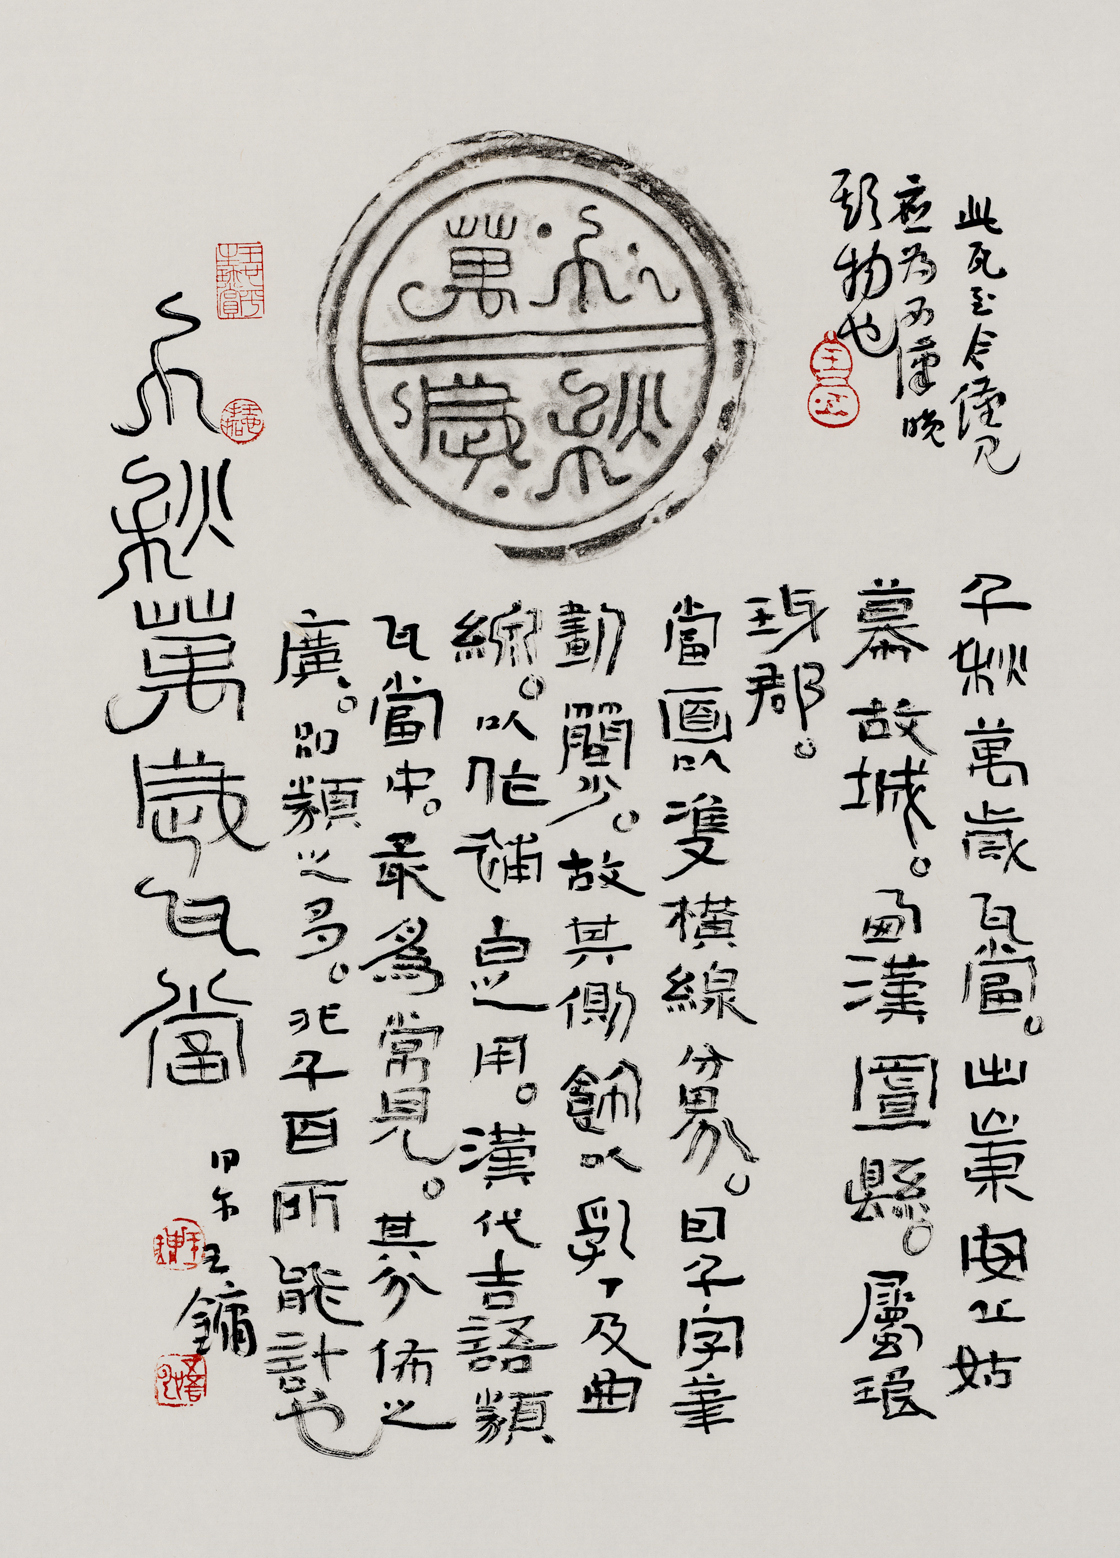 此瓦至今僅見
應為西漢晚
期物也
千秋
萬歲
千秋萬歲瓦當。出山東安丘姑
幕故城。西漢置縣。屬琅
琊郡。
當面以雙橫線分界。因千字筆
劃簡少。故其側飾以乳丁及曲
線。以作補白之用。漢代吉語類
瓦當中。最爲常見。其分佈之
廣。品類之多。非千百所能計也
千秋萬歲瓦當
甲午王鏞